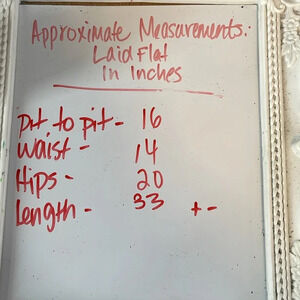 Approximate Measurements:
Laid Flat
In Inches
pit to pit - 16
Waist - 14
Hips - 20
Length - 33 + -